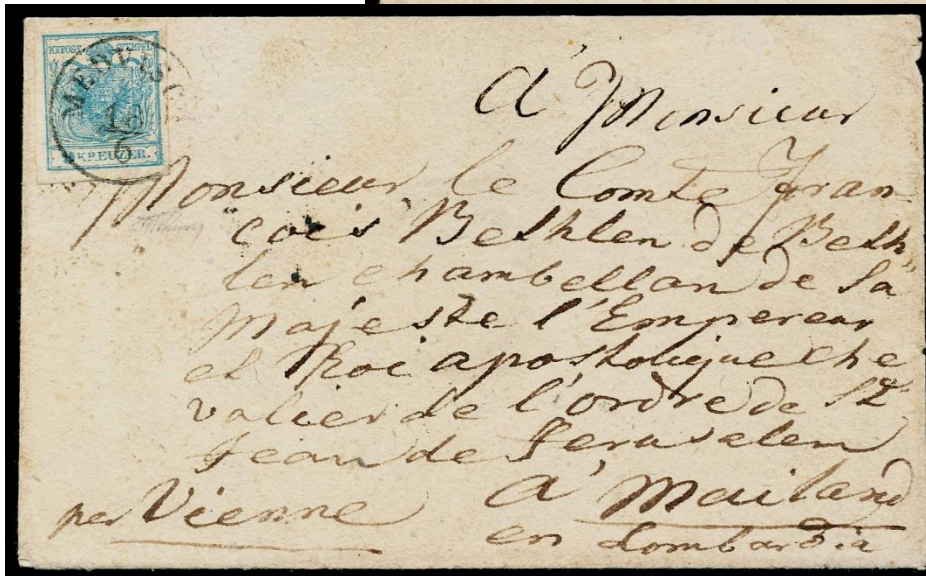 KKPOST-STEMPEL
9 KREUZER.
MEDVISCH
18
6
A' Monsieur
Monsieur le Comte Fran-
cois Bethlen de Beth-
len chambellan de Sa
Majeste l'Empereur
et Roi apostolique che
valier de l'ordre de St
Jean de Jeruselem
per Vienne A' Mailand
en Lombardia